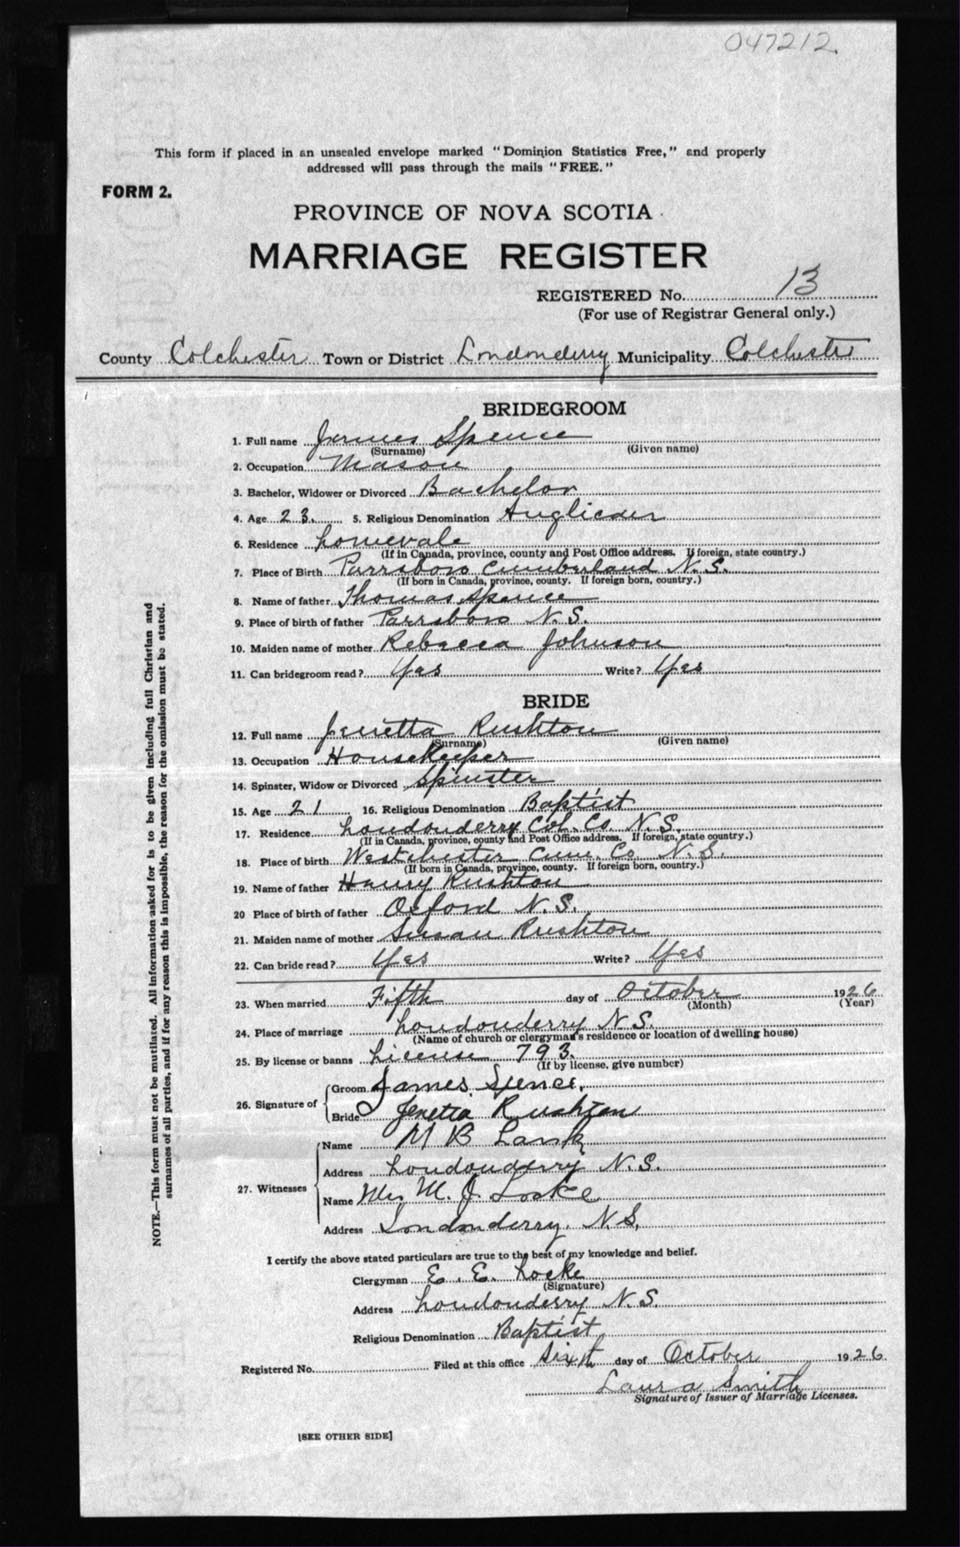 047212.
This form if placed in an unsealed envelope marked "Dominion Statistics Free," and properly
addressed will pass through the mails "FREE."
FORM 2.
PROVINCE OF NOVA SCOTIA
MARRIAGE REGISTER
REGISTERED No. 13
(For use of Registrar General only.)
County Colchester Town or District Londonderry Municipality Colchester
BRIDEGROOM
1. Full name James Spence
(Surname) (Given name)
2. Occupation Mason
3. Bachelor, Widower or Divorced Bachelor
4. Age 23. 5. Religious Denomination
6. Residence
(If in Canada, province, county and Post Office address. If foreign, state country.)
7. Place of Birth Parrsboro Cumberland N.S.
(If born in Canada, province, county. If foreign born, country.)
8. Name of father Thomas Spence
9. Place of birth of father Parrsboro N.S.
10. Maiden name of mother Rebecca Johnson
11. Can bridegroom read? Yes Write? Yes
BRIDE
12. Full name Jenetta Rushton
(Surname) (Given name)
13. Occupation HouseKeeper
14. Spinster, Widow or Divorced Spinster
15. Age 21 16. Religious Denomination Baptist
17. Residence Londonderry Col. Co. N.S.
(If in Canada, province, county and Post Office address. If foreign, state country.)
18. Place of birth Westchester Cum. Co N.S.
(If born in Canada, province, county. If foreign born, country.)
19. Name of father Rushton
20 Place of birth of father Oxford N.S.
21. Maiden name of mother Susan Rushton
22. Can bride read? Yes Write? Yes
23. When married Fifth day of October 1926
(Month) (Year)
24. Place of marriage Londonderry N.S.
(Name of church or clergyman's residence or location of dwelling house)
25. By license or banns License 793.
(If by license, give number)
26. Signature of Groom James Spence,
Bride Jenetta Rushton
27. Witnesses Name M B
Address Londonderry N.S.
Name Mrs M. J. Locke
Address Londonderry. N.S,
I certify the above stated particulars are true to the best of my knowledge and belief.
Clergyman E. E. Locke
(Signature)
Address Londonderry N.S.
Religious Denomination Baptist
Registered No. Filed at this office Sixth day of October 1926.
Laura Smith
Signature of Issuer of Marriage Licenses.
[SEE OTHER SIDE]
NOTE.—This form must not be mutilated. All information asked for is to be given including full Christian and
surnames of all parties, and if for any reason this is impossible, the reason for the omission must be stated.